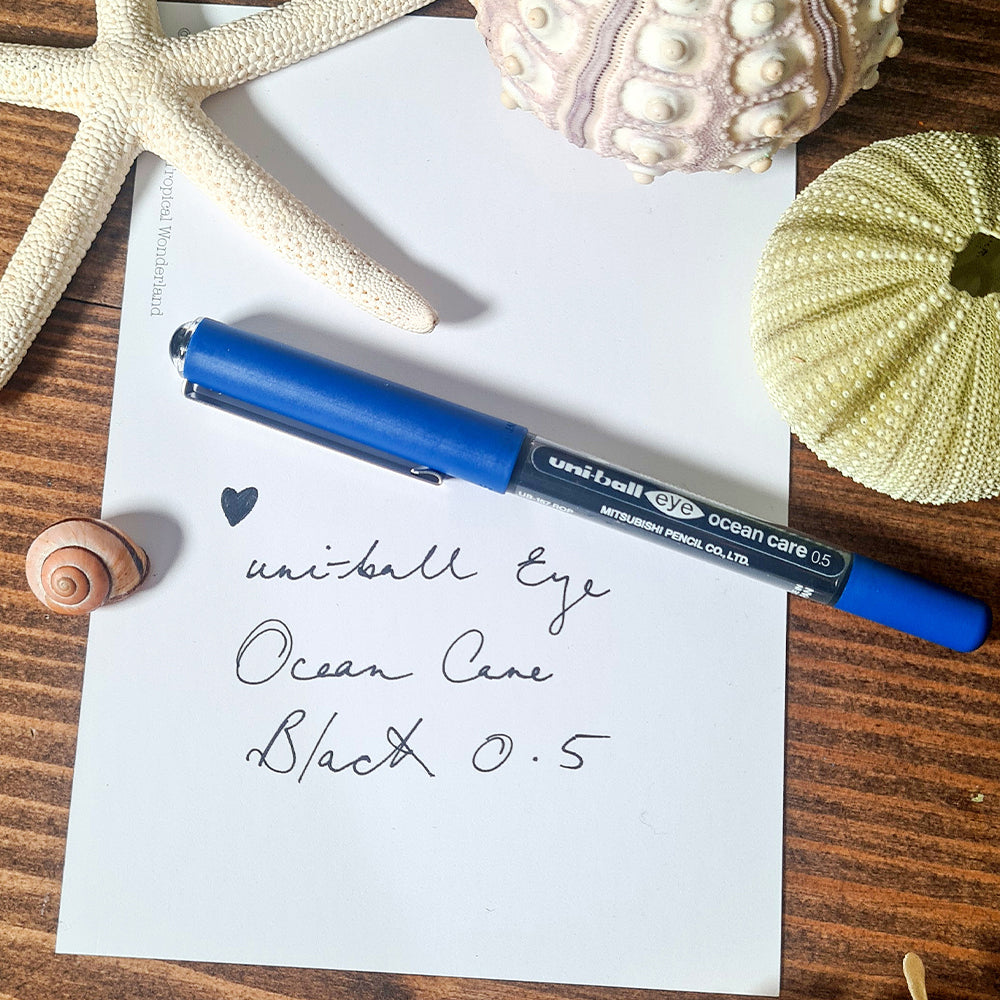 Tropical Wonderland
uni-ball eye ocean care 0.5
MITSUBISHI PENCIL CO., LTD.
uni-ball Eye
Ocean Care
Black 0.5